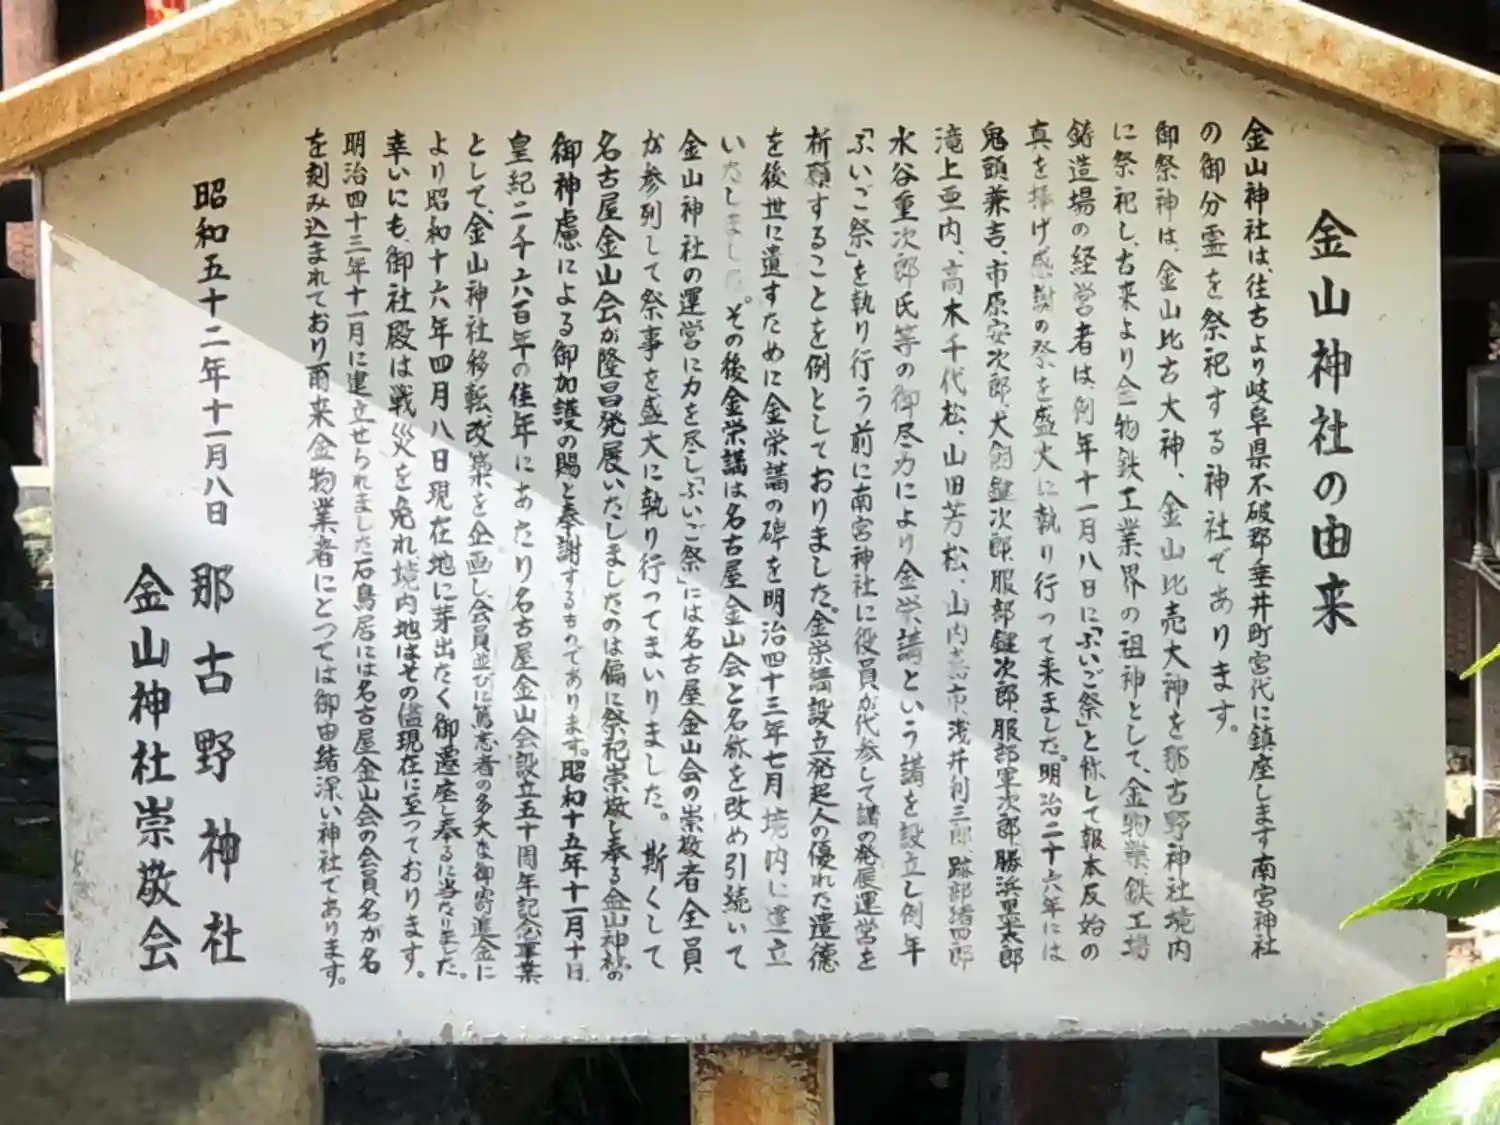 金山神社の由来
金山神社は、往古より岐阜県不破郡垂井町宮代に鎮座します南宮神社
の御分霊を祭祀する神社であります。
御祭神は、金山比古大神、金山比売大神を那古野神社境内
に祭祀し、古来より金物鉄工業界の祖神として、金物業鉄工場
鋳造場の経営者は、例年十一月八日に「ふいご祭」と称して報本反始の
真を捧げ感謝の祭を盛大に執り行って来ました。明治二十六年には
鬼頭兼吉、市原安次郎、犬飼鍵次郎、服部鍵次郎、服部軍次郎、勝浜里太郎
滝上亜内、高木千代松、山田芳松、山内嘉市、浅井利三郎、跡部緒四郎
水谷重次郎氏等の御尽力により金栄講という講を設立し例年
「ふいご祭」を執り行う前に南宮神社に役員が代参して講の発展運営を
祈願することを例としておりました。金栄講設立発起人の優れた遺徳
を後世に遺すために金栄講の碑を明治四十三年七月境内に建立
いたしました。その後金栄講は名古屋金山会と名称を改め引続いて
金山神社の運営に力を尽し「ふいご祭」には名古屋金山会の崇敬者全員
が参列して祭事を盛大に執り行ってまいりました。斯くして
名古屋金山会が隆昌発展いたしましたのは偏に祭祀崇敬し奉る金山神社の
御神慮による御加護の賜と奉謝するものであります。昭和十五年十一月十日
皇紀二千六百年の佳年にあたり名古屋金山会設立五十周年記念事業
として、金山神社移転、改築を企画し、会員並びに篤志者の多大な御寄進金に
より昭和十六年四月八日現在地に芽出たく御遷座し奉るに当たりました。
幸いにも、御社殿は戦災を免れ境内地はその儘現在に至っております。
明治四十三年十一月に建立せられました石鳥居には名古屋金山会の会員名が名
を刻み込まれており爾来金物業者にとっては御由緒深い神社であります。
昭和五十二年十一月八日　那古野神社
金山神社崇敬会